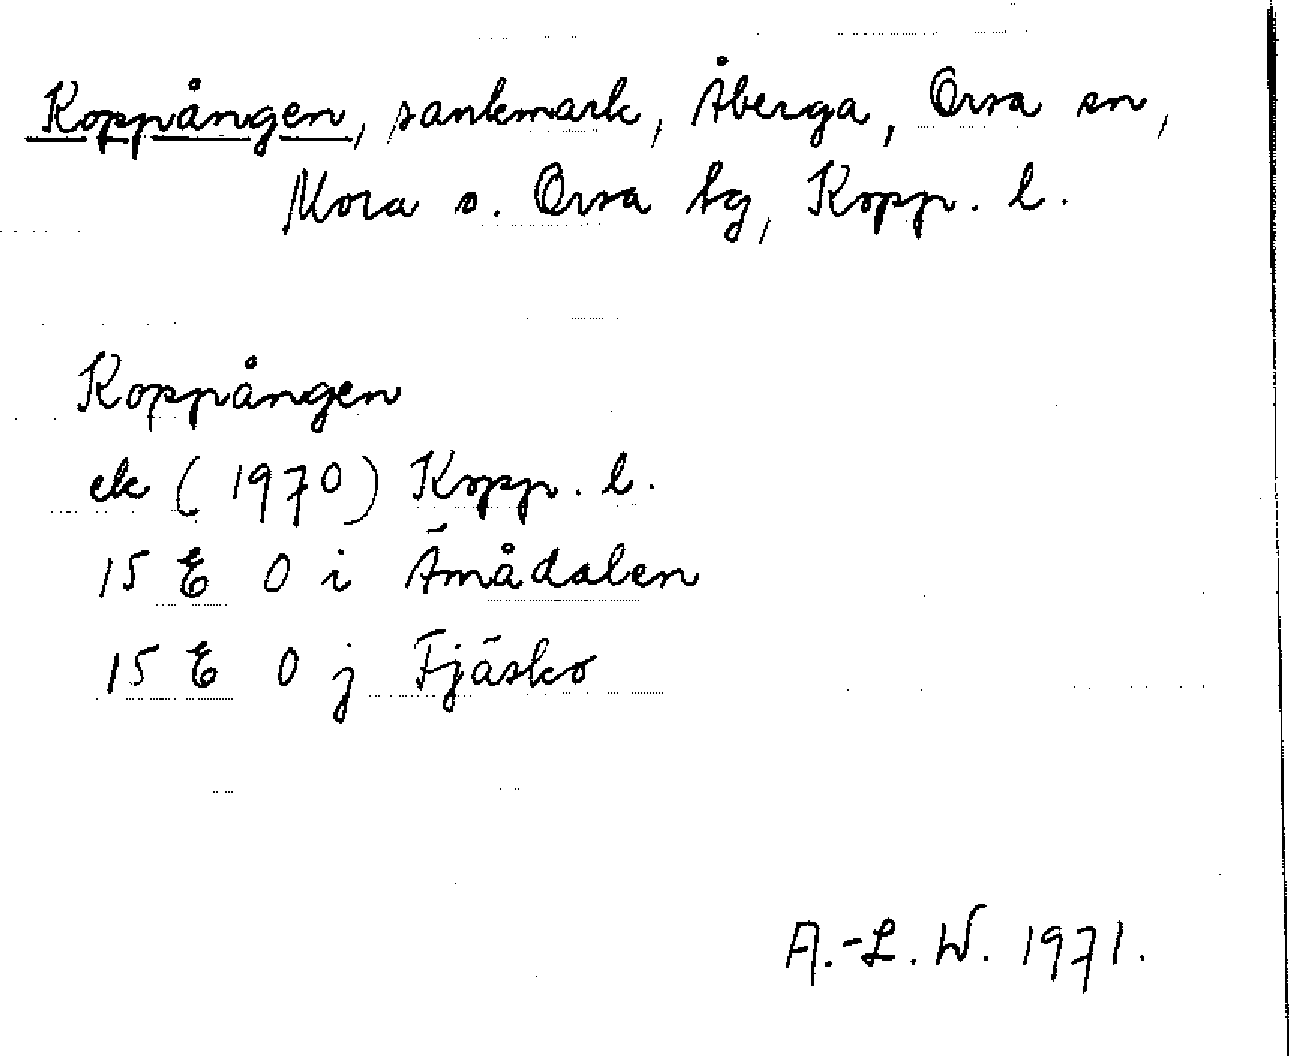 Koppången, sankmark, Åberga, Orsa sn,
Mora o. Orsa tg, Kopp. l.
Koppången
ek (1970) Kopp. l.
15 E 0 i Ämådalen
15 E 0 j Fjäsko
A.-L. W. 1971.